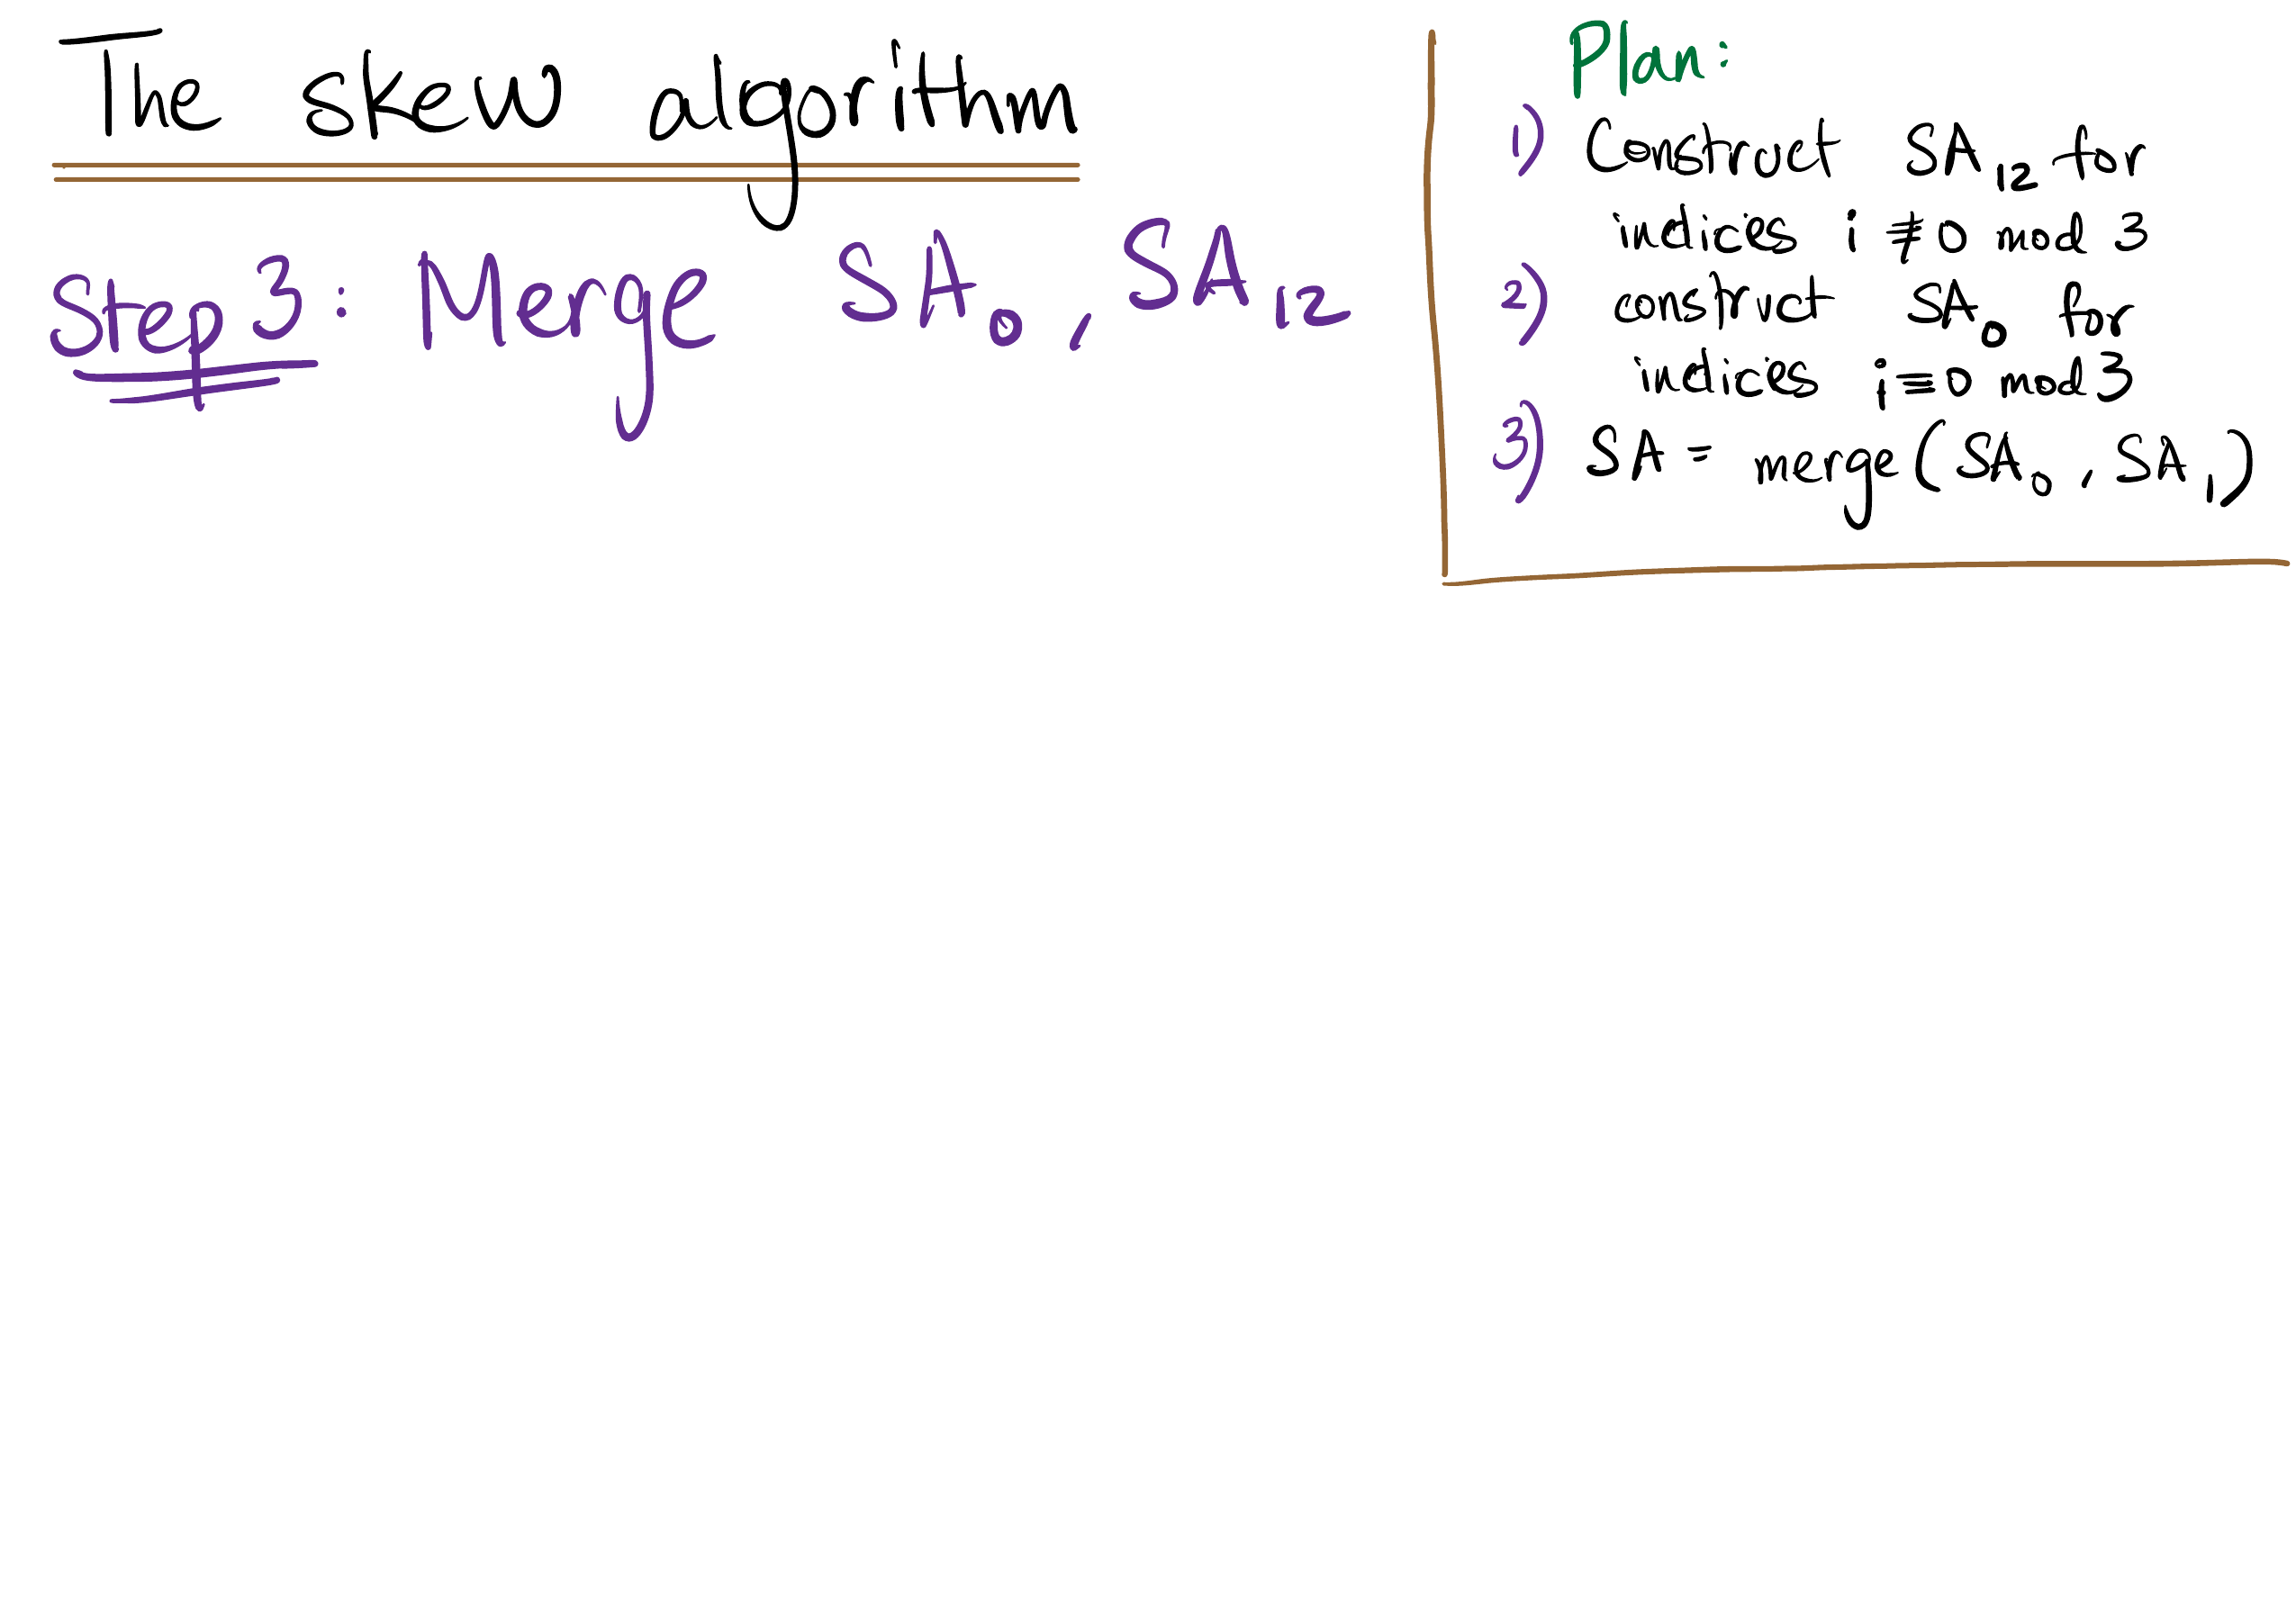 The skew algorithm
Step 3: Merge SA₀, SA₁₂
Plan:
1) Construct SA₁₂ for
indices i ≢ 0 mod 3
2) construct SA₀ for
indices i ≡ 0 mod 3
3) SA = merge(SA₀, SA₁)